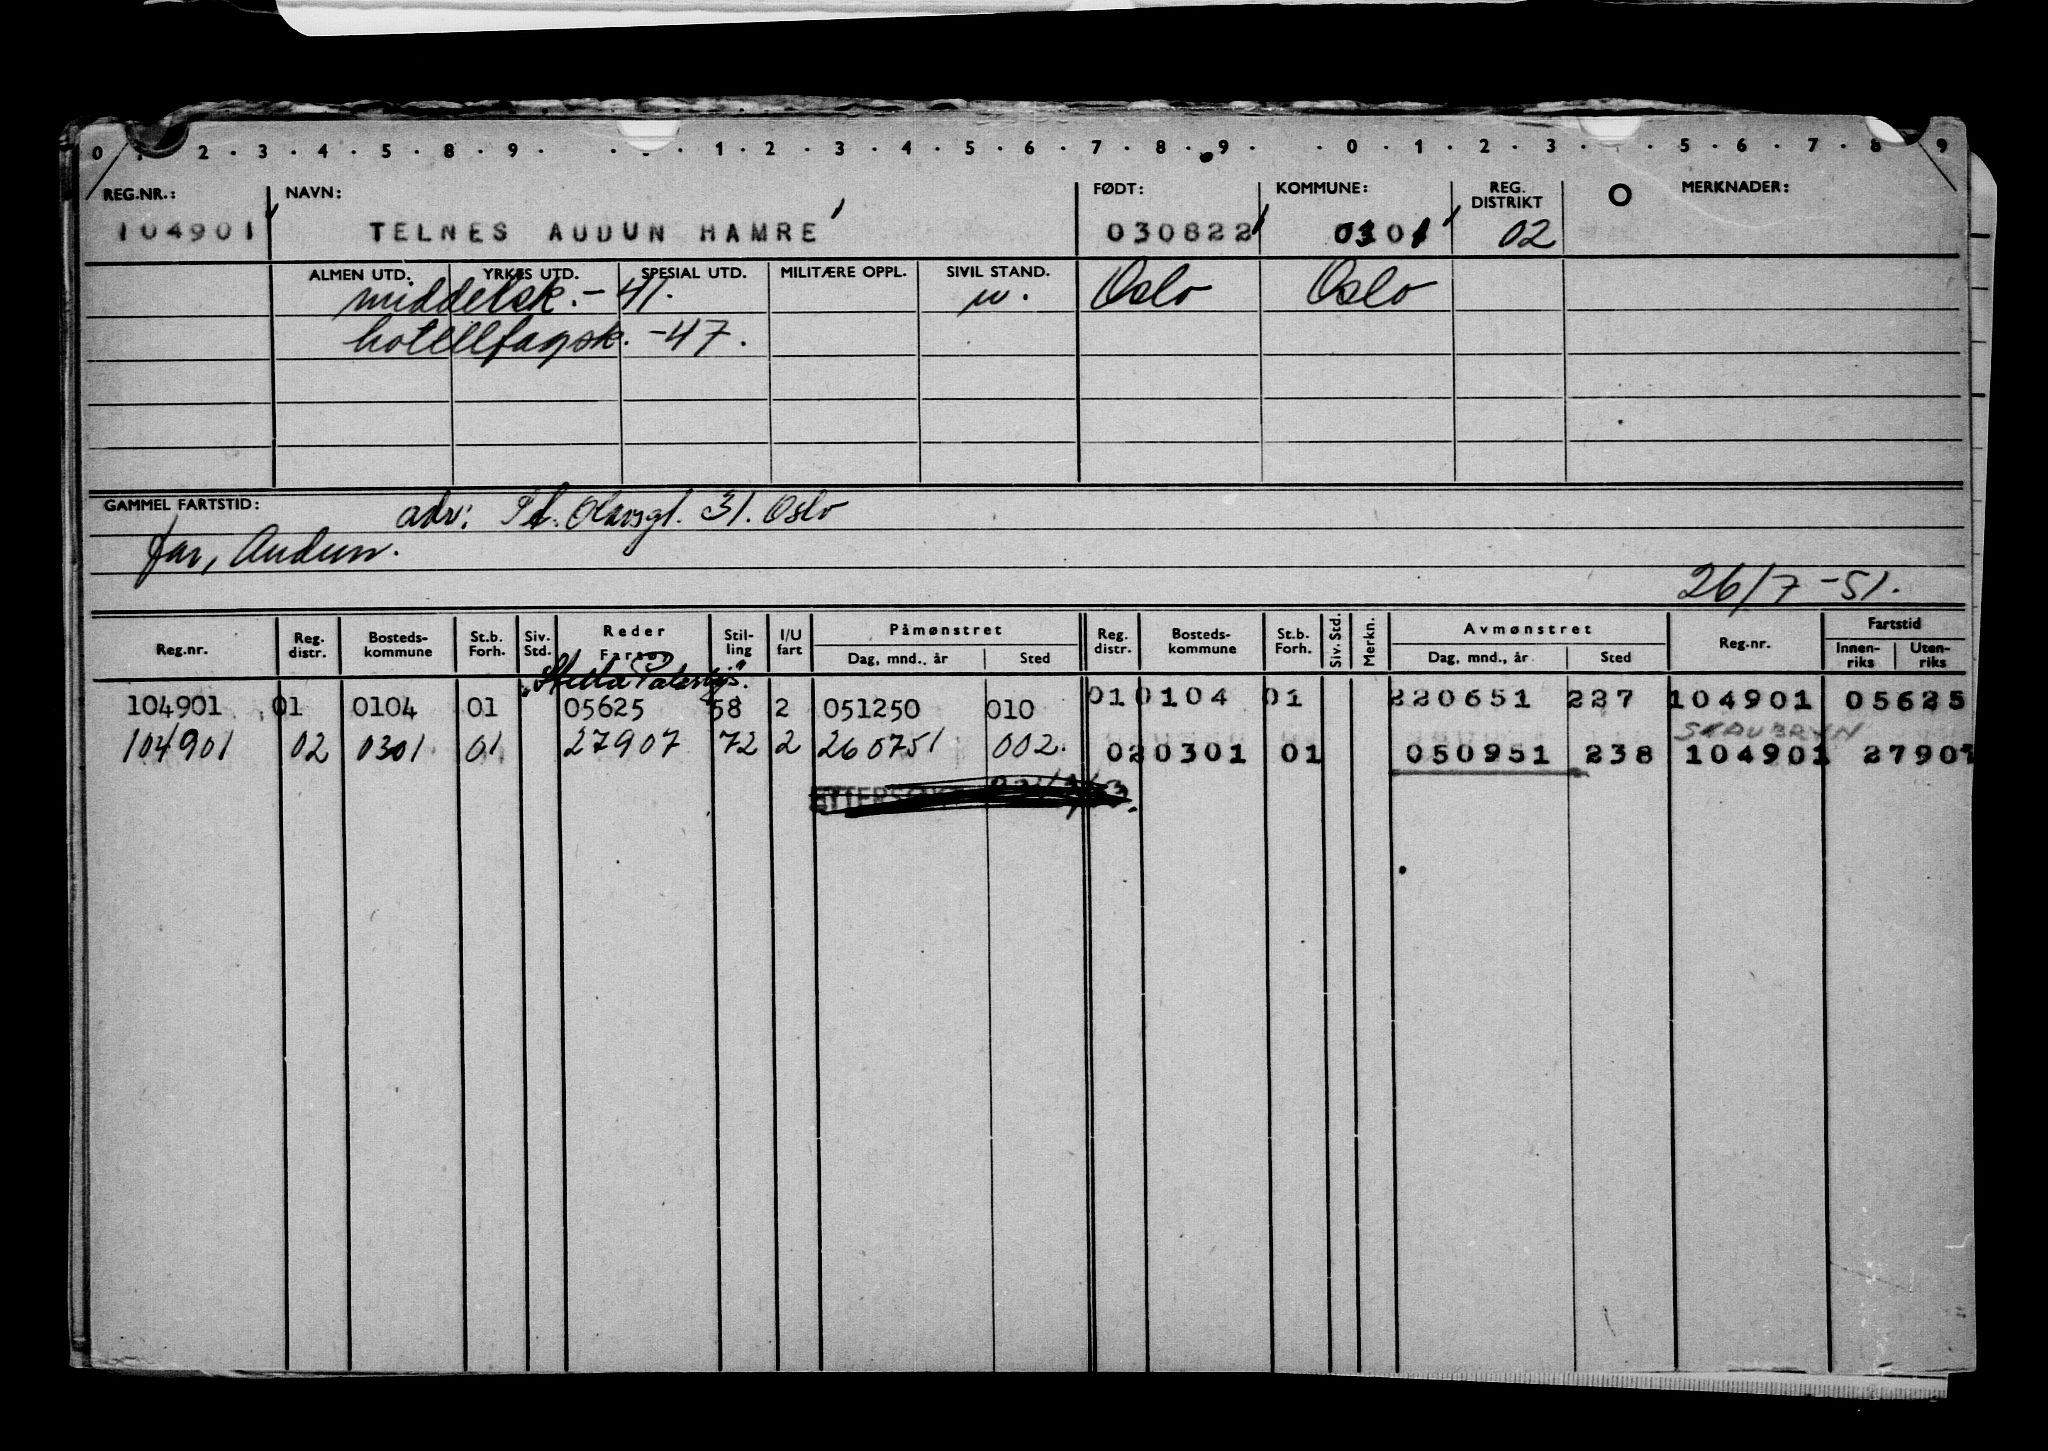 0 1 . 2 . 3 . 4 . 5 . 8 . 9 . . . 1 . 2 . 3 . 4 . 5 . 6 . 7 . 8 . 9 . . 0 . 1 . 2 . 3 . . 5 . 6 . 7 . 8 . 9
REG.NR.: NAVN: FØDT: KOMMUNE: REG. DISTRIKT MERKNADER:
104901 TELNES AUDUN HAMRE 030822 0301 02
ALMEN UTD. YRKES UTD. SPESIAL UTD. MILITÆRE OPPL. SIVIL STAND.
middelsk. - 41. u. Oslo Oslo
hotellfagsk. - 47.
GAMMEL FARTSTID: adr: St. Olavsgt. 31. Oslo
far, Audun.
26/7 - 51.
Reg.nr. Reg. distr. Bosteds- kommune St.b. Forh. Siv. Std. Reder Fartøy Stil- ling I/U fart Påmønstret Dag, mnd., år Sted Reg. distr. Bosteds- kommune St.b. Forh. Siv. Std. Merkn. Avmønstret Dag, mnd., år Sted Reg.nr. Fartstid Innen- riks Uten- riks
"Stella
104901 01 0104 01 05625 58 2 051250 010 01 0104 01 220651 227 104901 05625
STAUBRYN
104901 02 0301 01 27907 72 2 260751 002. 02 0301 01 050951 238 104901 27907